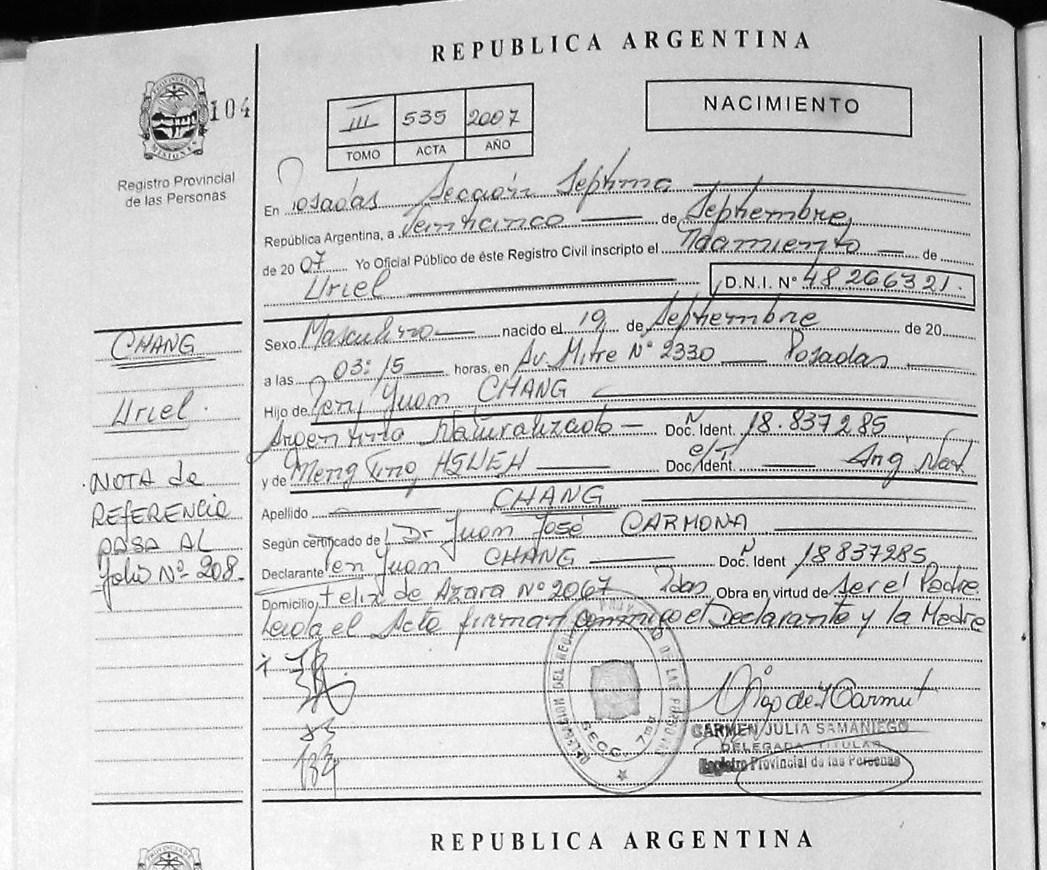 REPUBLICA ARGENTINA
PROVINCIA DE
MISIONES
104
Registro Provincial
de las Personas
III 535 2007
TOMO ACTA AÑO
NACIMIENTO
En Posadas Sección Septima
República Argentina, a Veinticinco de Septiembre
de 2007 Yo Oficial Público de éste Registro Civil inscripto el Nacimiento de
Uriel D.N.I. Nº 48 266321.
Sexo Masculino nacido el 19 de Septiembre de 20
a las 03:15 horas, en Av. Mitre Nº 2330 Posadas
Hijo de Jen, Yuan CHANG
Argentino Naturalizado Doc. Ident. N 18.837285
y de Meng Ting HSUEH Doc. Ident. e/T Arg. Nat.
Apellido CHANG
Según certificado de Dr Juan José CARMONA
Declarante Jen Yuan CHANG Doc. Ident N 18837285
Domicilio, Felix de Azara Nº 2067 Pdas Obra en virtud de Ser el Padre
Leida el Acta firman conmigo el Declarante y la Madre
CHANG
Uriel.
NOTA de
REFERENCIA
PASA AL
folio Nº 208.
DELEGACION DEL REGISTRO PROVINCIAL DE LAS PERSONAS
SECC. 7ma
CARMEN JULIA SAMANIEGO
DELEGADA TITULAR
Registro Provincial de las Personas
REPUBLICA ARGENTINA